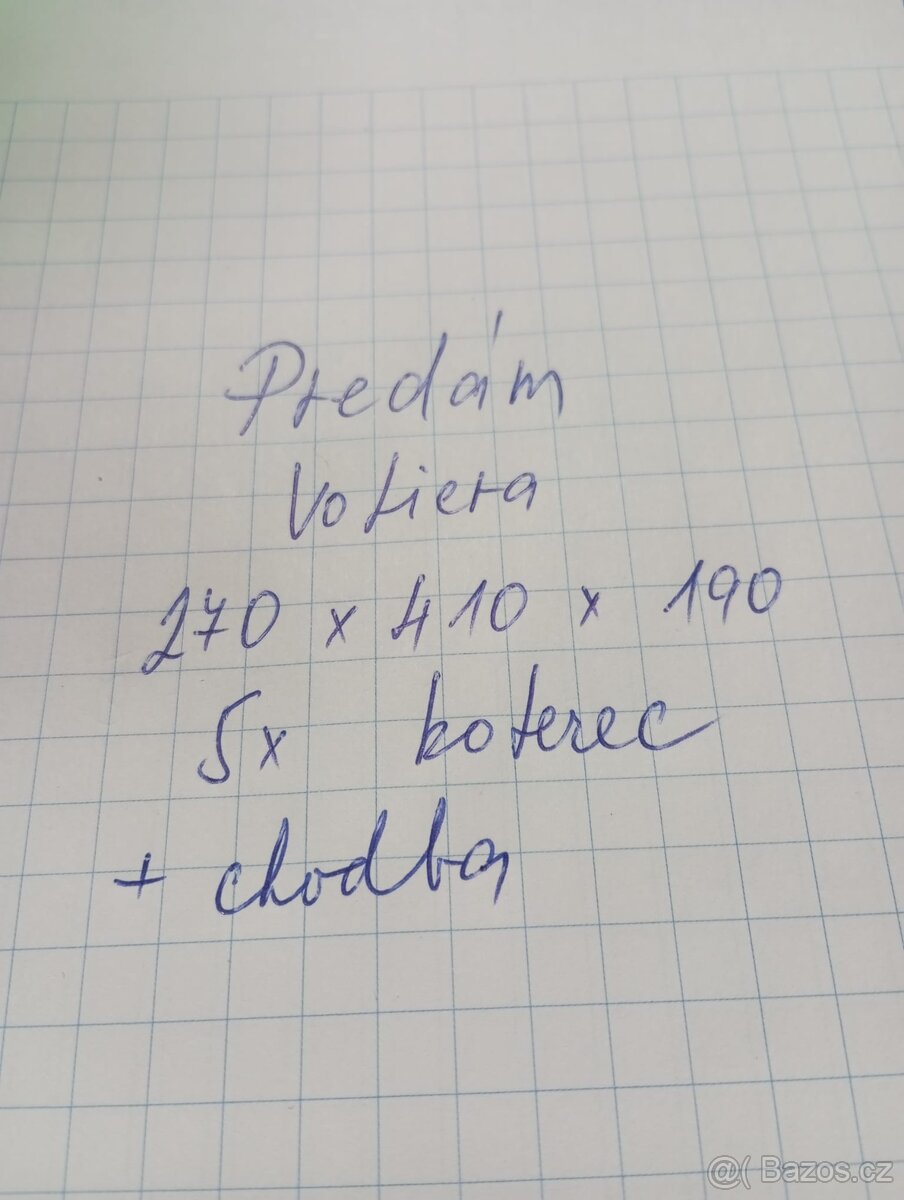 Predám
Voliera
270 x 410 x 190
5x koterec
+ chodba
@( Bazos.cz